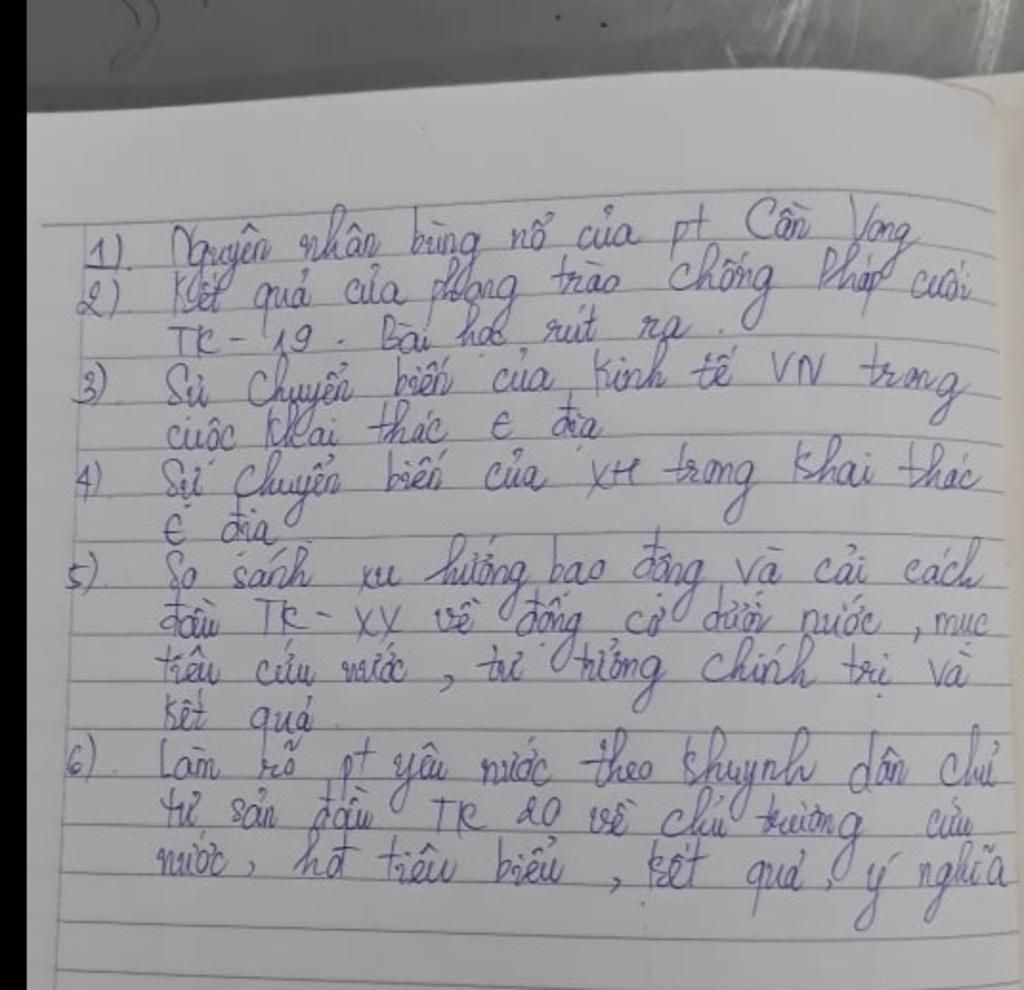 1). Nguyên nhân bùng nổ của pt Cần Vương
2). Kết quả của phong trào chống Pháp cuối
TK - 19. Bài học rút ra.
3) Sự chuyển biến của kinh tế VN trong
cuộc khai thác € địa
4) Sự chuyển biến của XH trong khai thác
€ địa
5) So sánh xu hướng bạo động và cải cách
đầu TK - XX về động cơ dưới nước, mục
tiêu cứu nước, tư tưởng chính trị và
kết quả
6). Làm rõ pt yêu nước theo khuynh dân chủ
tư sản đầu TK 20 về chủ trương cứu
nước, hđ tiêu biểu, kết quả, ý nghĩa